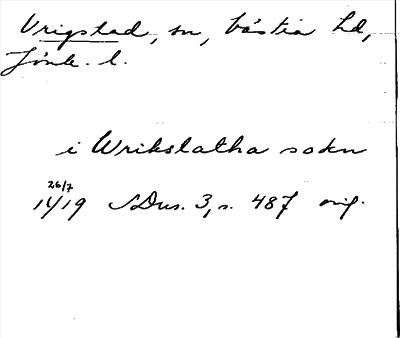 Vrigstad, sn, Västra hd,
Jönk. l.
i Wrikstatha sokn
26/7
1419 SDns. 3, s. 487 orig.